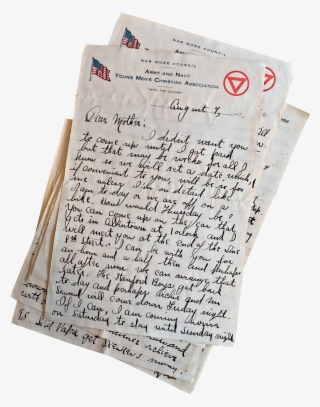 WAR WORK COUNCIL
WAR WORK COUNCIL
ARMY AND NAVY
YOUNG MEN'S CHRISTIAN ASSOCIATION
"WITH THE COLORS"
August 7, 191
Dear Mother:
I didn't want you
to come up until I got paid
but that may be weeks for all I
know so we will set a date which
if convenient to you will be so for
me unless I'm on detail like
I am to-day or we are off on a
hike. How would Thursday be?
You can come up on the car that
gets in Allentown at 1 o'clock and I
will meet you at the end of the line
8th street. I can be with you for
an hour and a half then and perhaps
all after noon we can arrange that
later. The Hanford Boys get back
to-day and perhaps Archie and Mr.
Sewall will come down Friday night.
If I can, I am coming home
on Saturday to stay until Sunday night
P.S. Did Papa get Stanley's money.